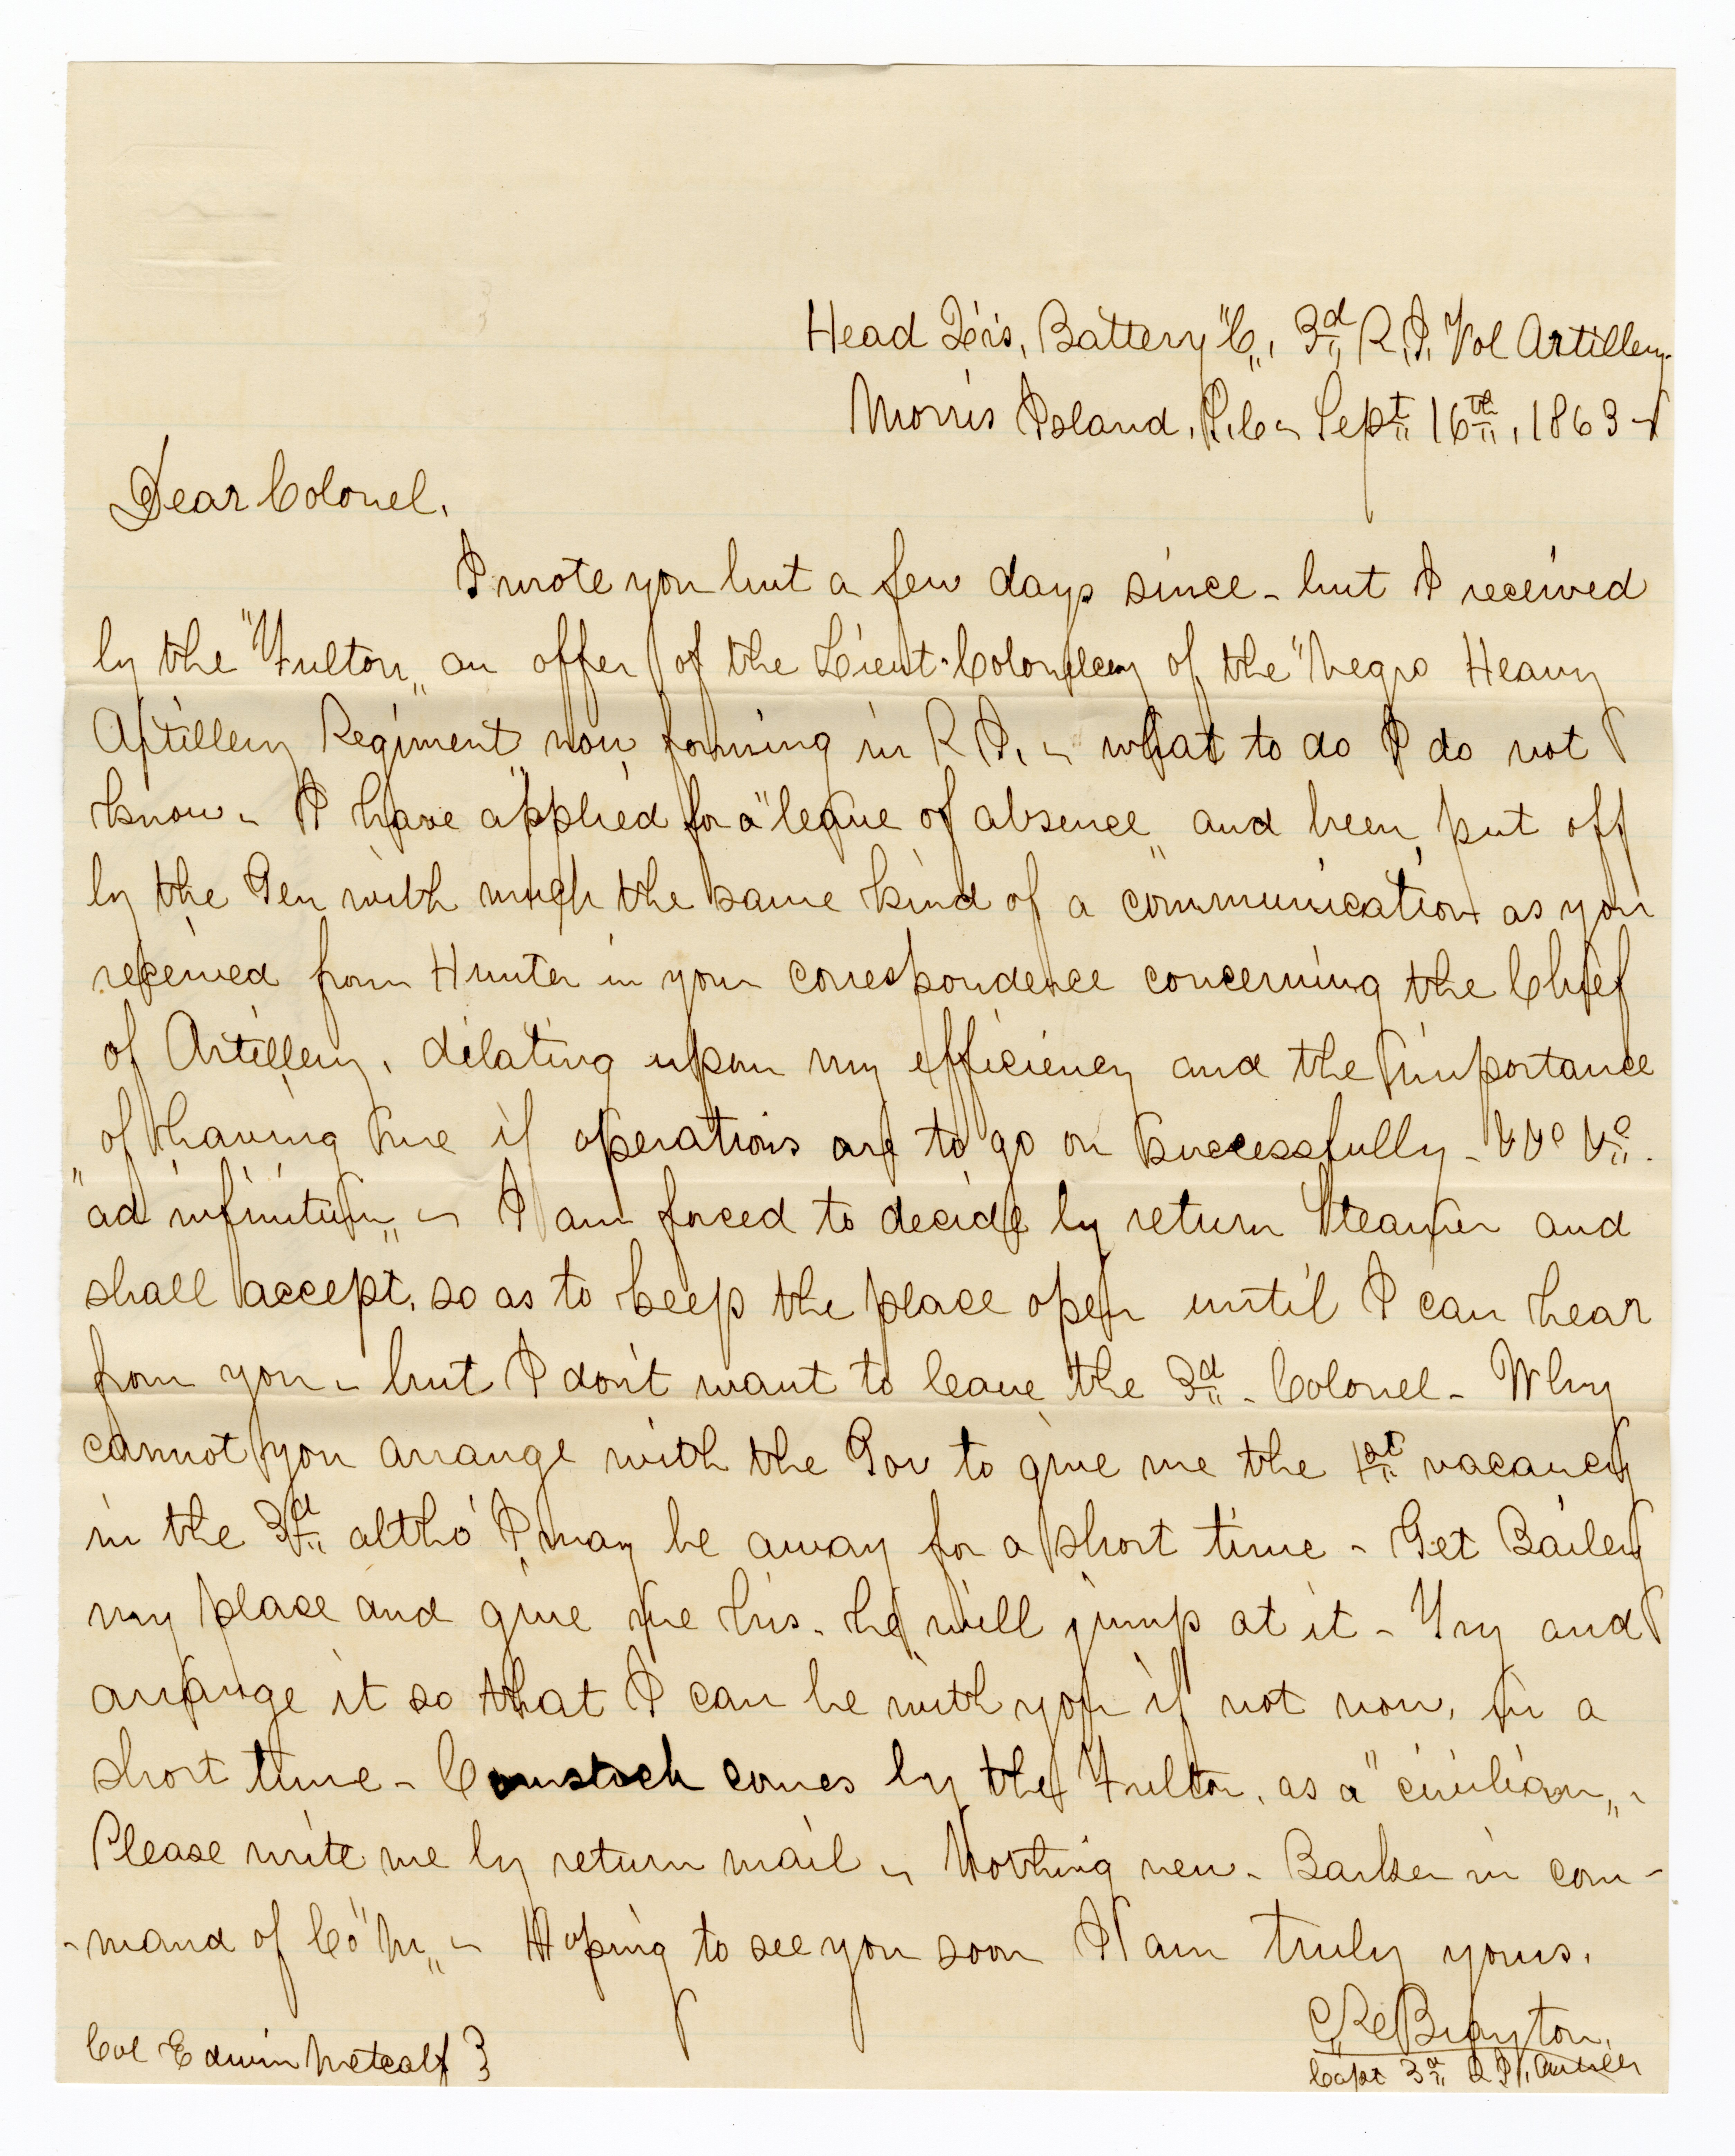 Head Qrs, Battery "C", 3d R.I. Vol Artillery
Morris Island, S.C. Sept 16th, 1863
Dear Colonel,
I wrote you but a few days since - but I received
by the "Fulton" an offer of the Lieut-Colonelcy of the "Negro Heavy
Artillery Regiment" now forming in R I. - what to do I do not
know - I have applied for a "leave of absence" and been put off
by the Gen with much the same kind of a communication as you
received from Hunter in your correspondence concerning the Chief
of Artillery, dilating upon my efficiency and the importance
of having me if operations are to go on successfully - &c &c
"ad infinitum" - I am forced to decide by return Steamer and
shall accept, so as to keep the place open until I can hear
from you - but I don't want to leave the 3d - Colonel - Why
cannot you arrange with the Gov to give me the 1st vacancy
in the 3d altho' I may be away for a short time - Get Bailey
my place and give me his. he will jump at it - Try and
arrange it so that I can be with you if not now, in a
short time - Comstock comes by the Fulton, as a "civilian" -
Please write me by return mail - Nothing new - Barker in com-
-mand of Co "M" - Hoping to see you soon I am truly yours,
C R Brayton,
Capt 3d R I. Artill
Col Edwin Metcalf }